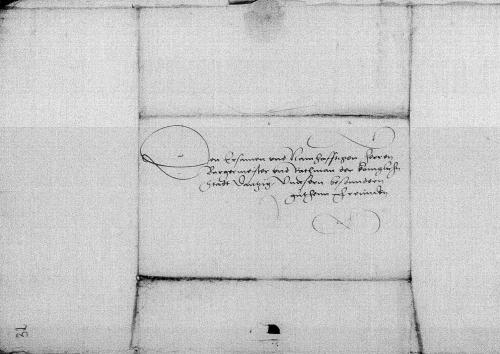 Den Ersamen vnd Namhafftigen Herren
Burgermeister vnd Rathman der Königlichen
Stadt Dantzig Vnsern besondern
guthenn Freunden
31